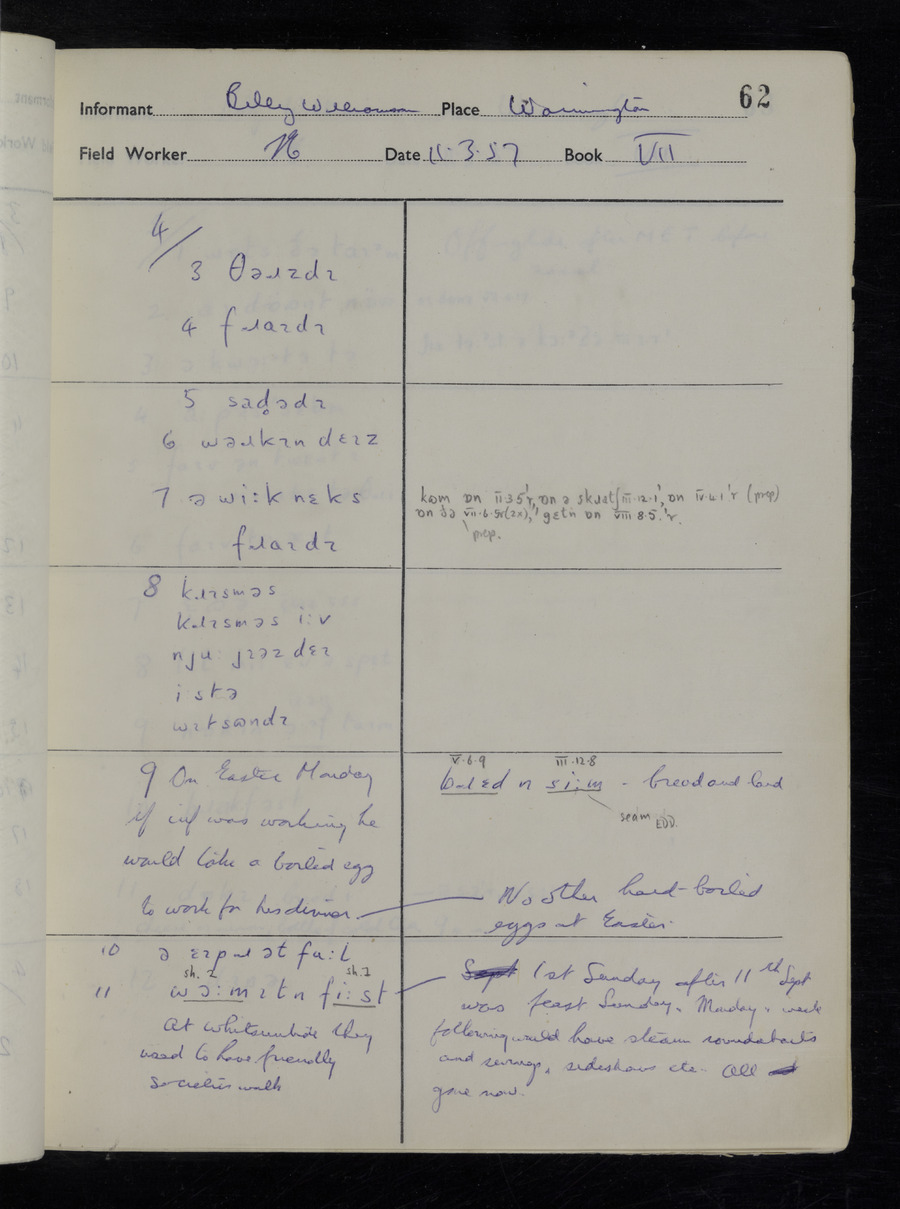 62
Informant Billy Williamson Place Warmington
Field Worker Date 11.3.57 Book VII
4/
3 θəɹzdɪ
4 fɹaɪdɪ
5 sad̥ədɪ
6 wəɹkɪn dɛɪz
7 ə wi:k nɛks
fɹaɪdɪ
kʊm ɒn II.3.5'r, ɒn ə skɹat III.12.1', ɒn IV.4.1'r (prep)
ɒn ðə VII.6.5r(2x), getn ɒn VIII.8.5.'r.
prep.
8 kɹɪsməs
kɹɪsməs i:v
nju: jɪəz dɛɪ
i:stə
wɪtsəndɪ
9 On Easter Monday
if inf was working he
would take a boiled egg
to work for his dinner.
V.6.9 III.12.8
bɹɛd n si:m - bread and lard
seam EDD.
No other hard-boiled
eggs at Easter.
10 ə ɛɪpɹət fu:l
sh. 2 sh. 1
11 wə:mɪtn fi:st
At Whitsuntide they
used to have friendly
societies walk
1st Sunday after 11th Sept
was feast Sunday. Monday & week
following would have steam roundabouts
and swings, sideshows etc. All
gone now.